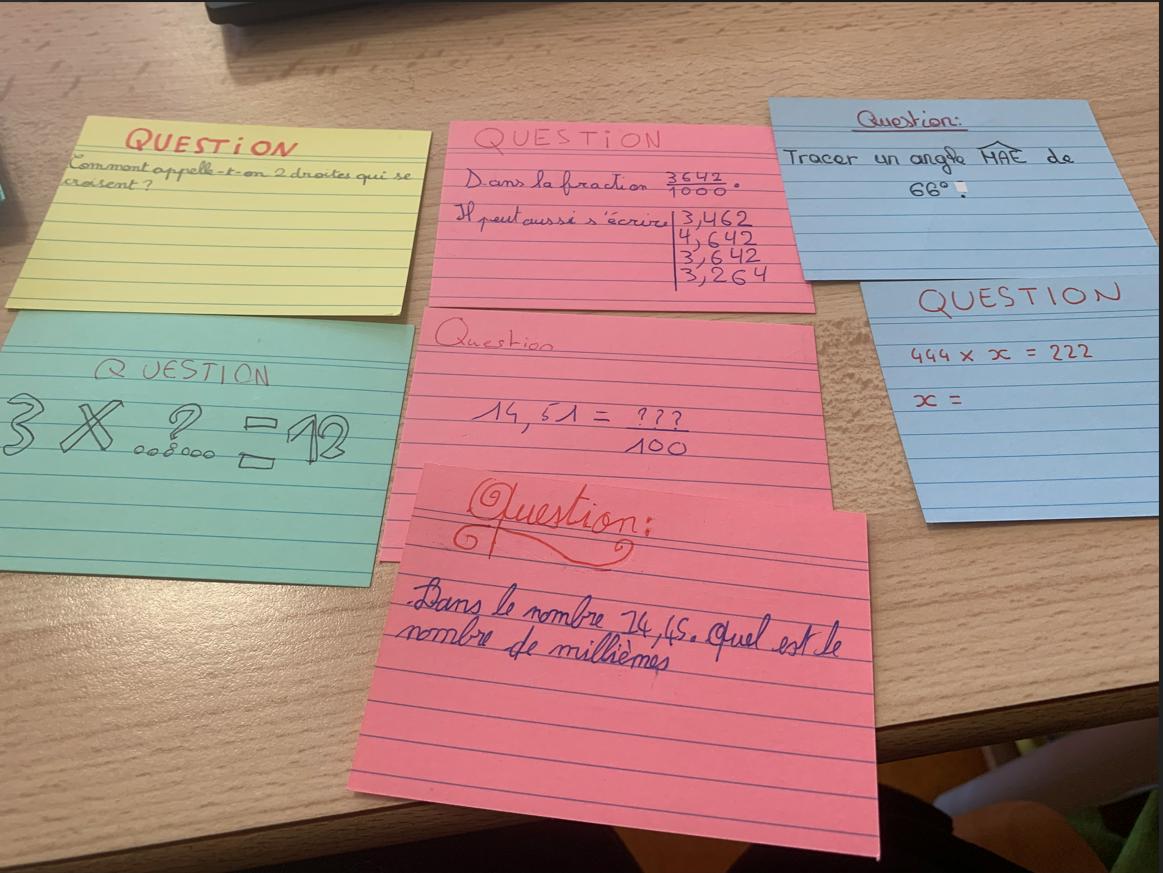 QUESTION
Comment appelle-t-on 2 droites qui se
croisent ?
QUESTION
Dans la fraction 3642/1000.
Il peut aussi s'écrire
3,462
4,642
3,642
3,264
Question:
Tracer un angle MAE de
66°.
QUESTION
3 X ? = 12
........
Question
14,51 = ???/100
QUESTION
444 x x = 222
x =
Question:
Dans le nombre 14,45. Quel est le
nombre de millièmes